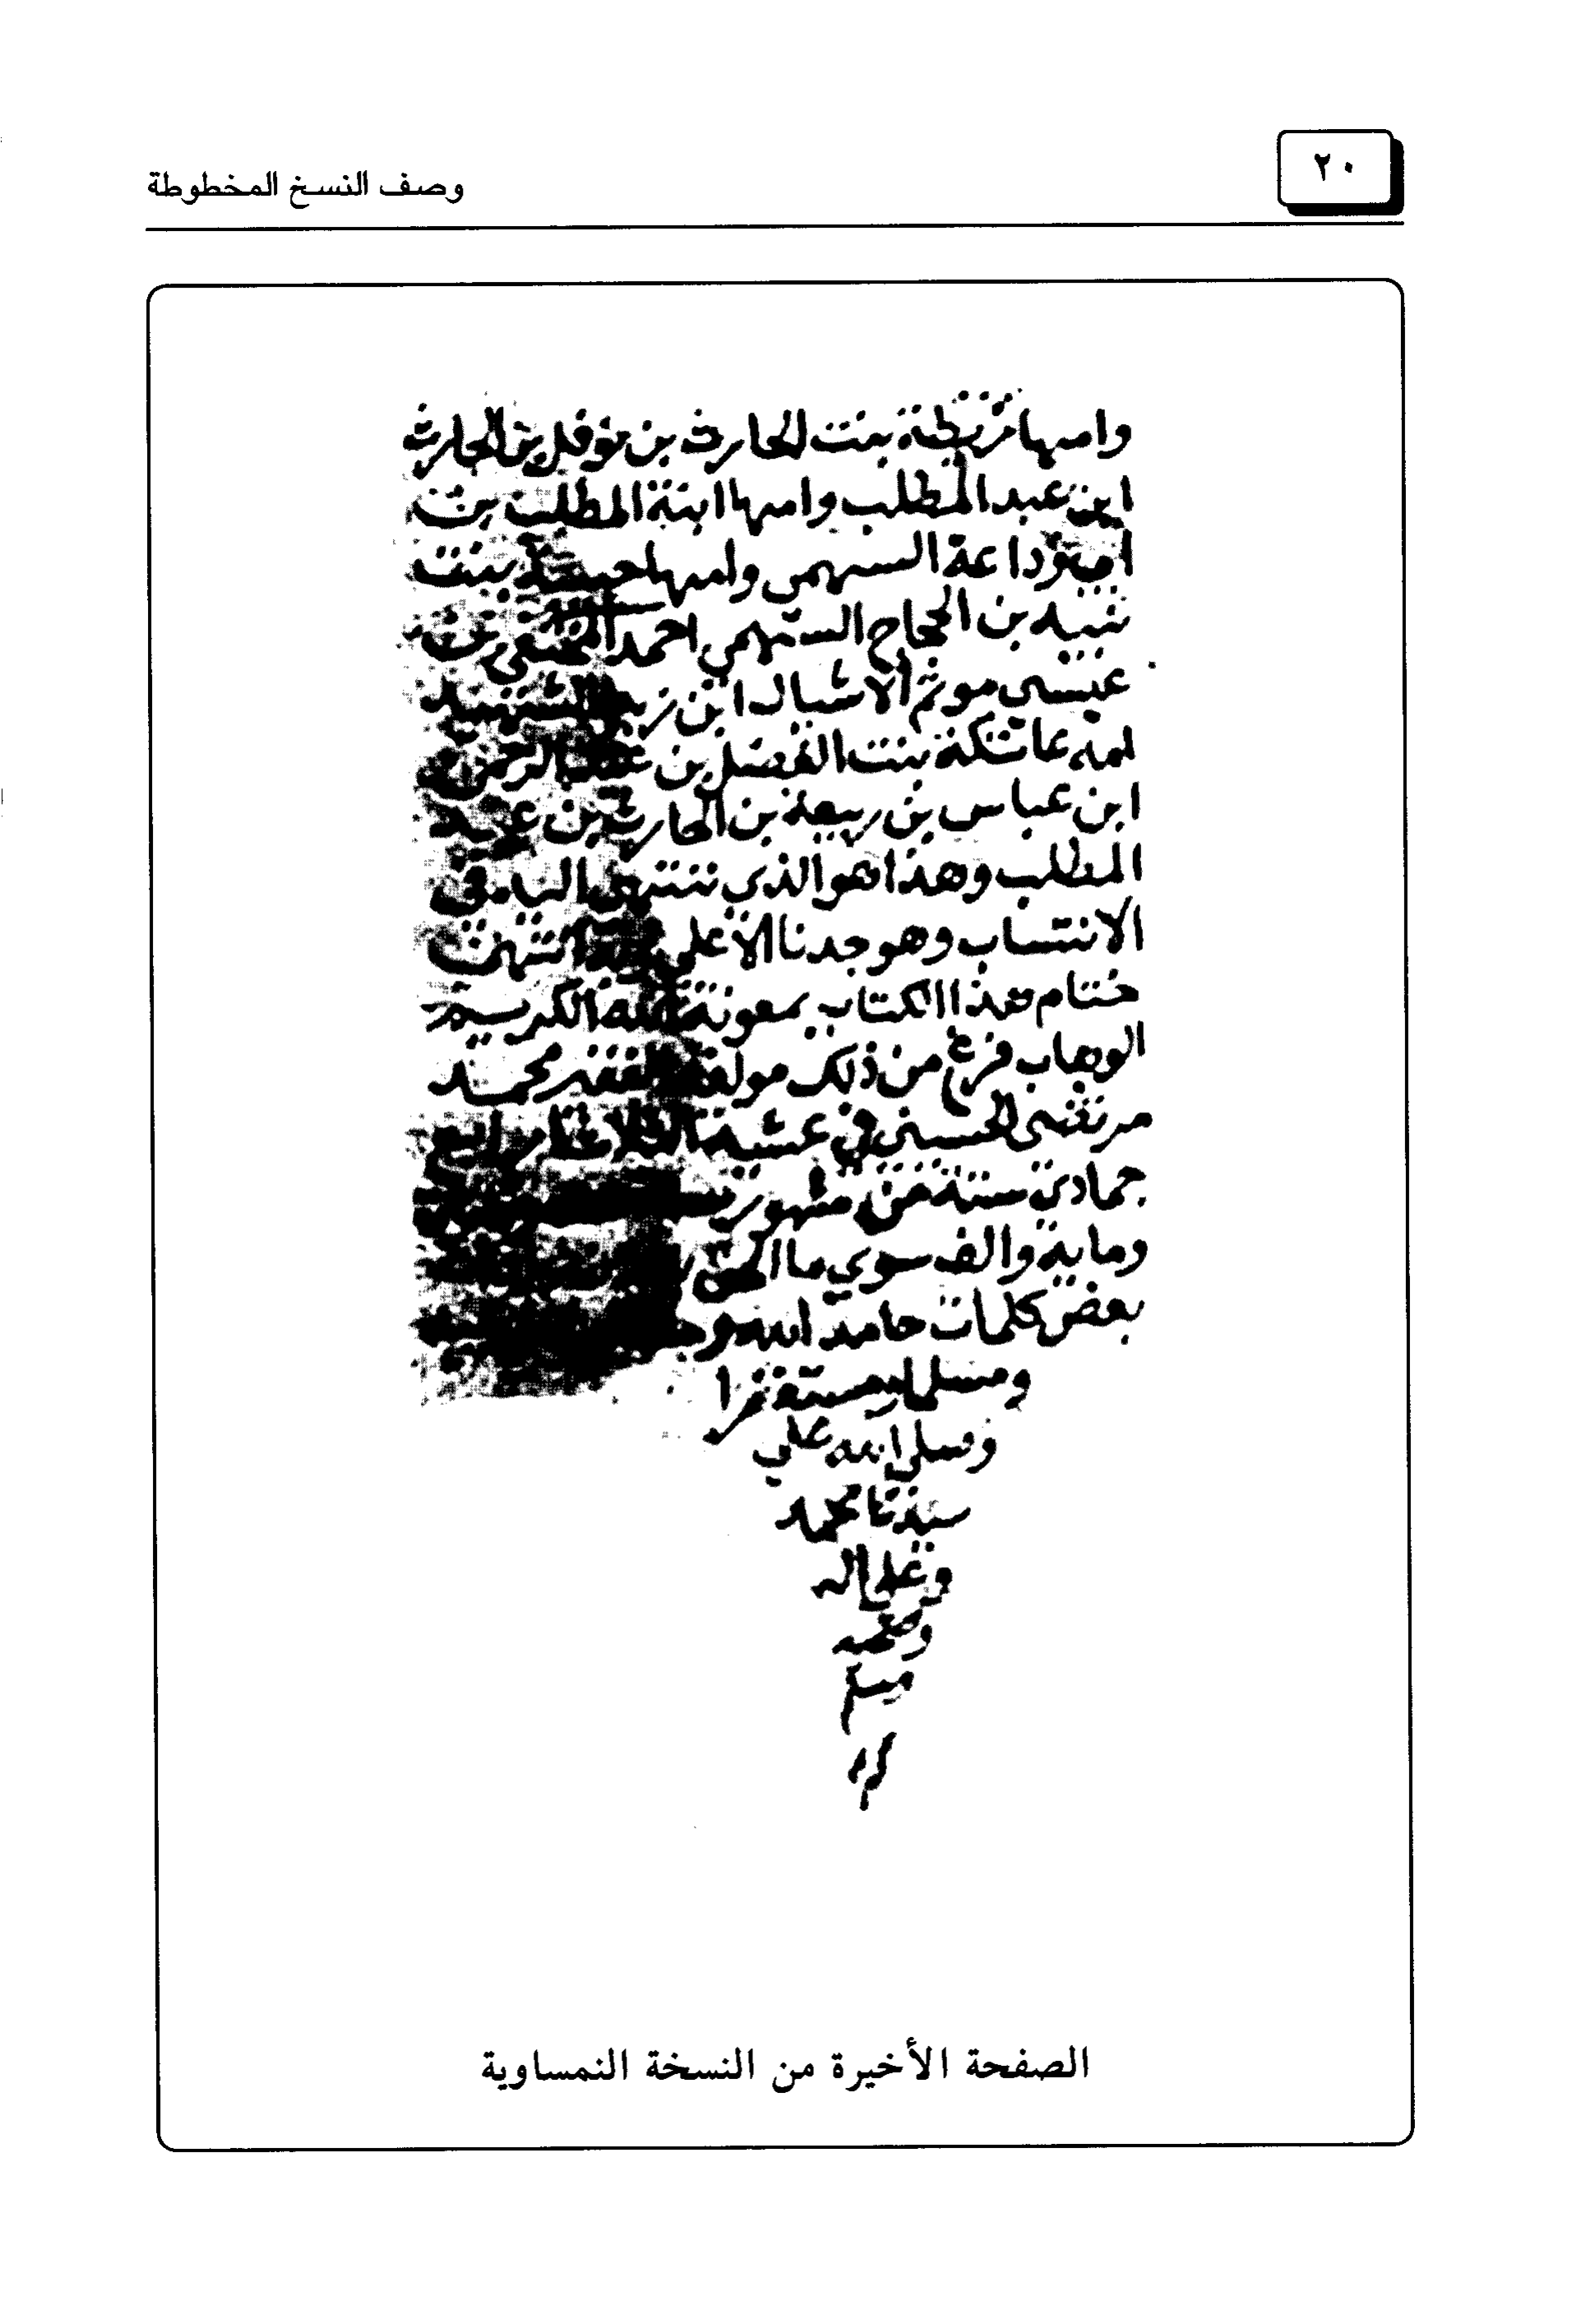 ٢٠
وصف النسخ المخطوطة
وامها قريطة بنت الحارث بن نوفل بن الحارث
ابن عبد المطلب وامها ابنة المطلب بن
ابي وداعة السهمي وامها بنت
نبيه بن الحجاج السهمي احمد المختفي بن
عيسى موتم الاشبال ابن زيد الشهيد
امه عاتكة بنت الفضل بن عبد الرحمن
ابن عباس بن ربيعة بن الحارث بن عبد
المطلب وهذا هو الذي ننتهي اليه في
الانتساب وهو جدنا الاعلى انتهى
ختام هذا الكتاب بمعونة الله الكريم
الوهاب فرغ من ذلك مولفه الفقير محمد
مرتضى الحسيني في عشية
جمادي سنة من شهور
وماية والف سوي ما الحق
بعض كلمات حامدا لله
ومسلما ومستغفرا
وصلى الله على
سيدنا محمد
وعلى اله
وصحبه
وسلم
الصفحة الأخيرة من النسخة النمساوية